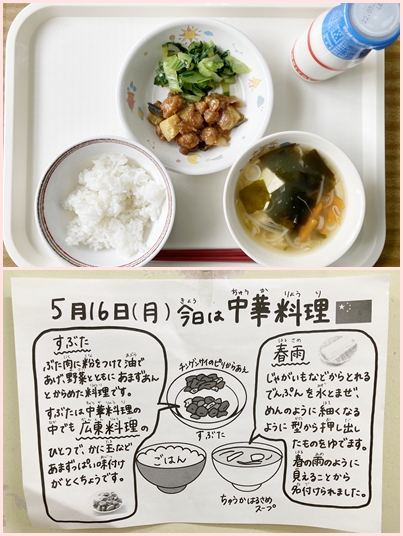 5月16日(月) 今日は中華料理
きょう ちゅう か りょう り
すぶた
ぶた肉に粉をつけて油で
あげ、野菜とともにあまずあん
とからめた料理です。
すぶたは中華料理の
中でも広東料理の
ひとつで、かに玉など
あまずっぱい味付け
がとくちょうです。
チンゲンサイのピリからあえ
すぶた
ごはん
ちゅうかはるさめ
スープ
はる さめ
春雨
じゃがいもなどからとれる
でんぷんを水とまぜ、
めんのように細くなる
ように型から押し出し
たものをゆでます。
春の雨のように
見えることから
名付けられました。